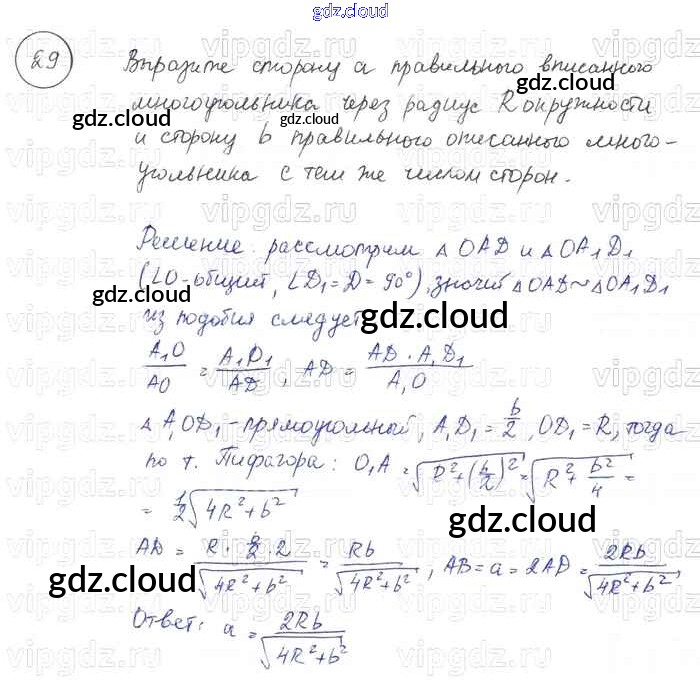 gdz.cloud
29 Выразите сторону a правильного вписанного
многоугольника через радиус R окружности
и сторону b правильного описанного много-
угольника с тем же числом сторон.
Решение: рассмотрим △ OAD и △ OA₁D₁
(∠O-общий, ∠D₁=D=90°), значит △OAD~△OA₁D₁
из подобия следует
A₁O/AO = A₁D₁/AD, AD = AD · A₁D₁/A₁O
△ A₁OD₁-прямоугольный, A₁D₁ = b/2, OD₁ = R, тогда
по т. Пифагора: O₁A = √(R²+(b/2)²) = √(R²+b²/4) =
= 1/2 √(4R²+b²)
AD = R · b/2 · 2/√(4R²+b²) = Rb/√(4R²+b²), AB=a=2AD = 2Rb/√(4R²+b²)
Ответ: a = 2Rb/√(4R²+b²)